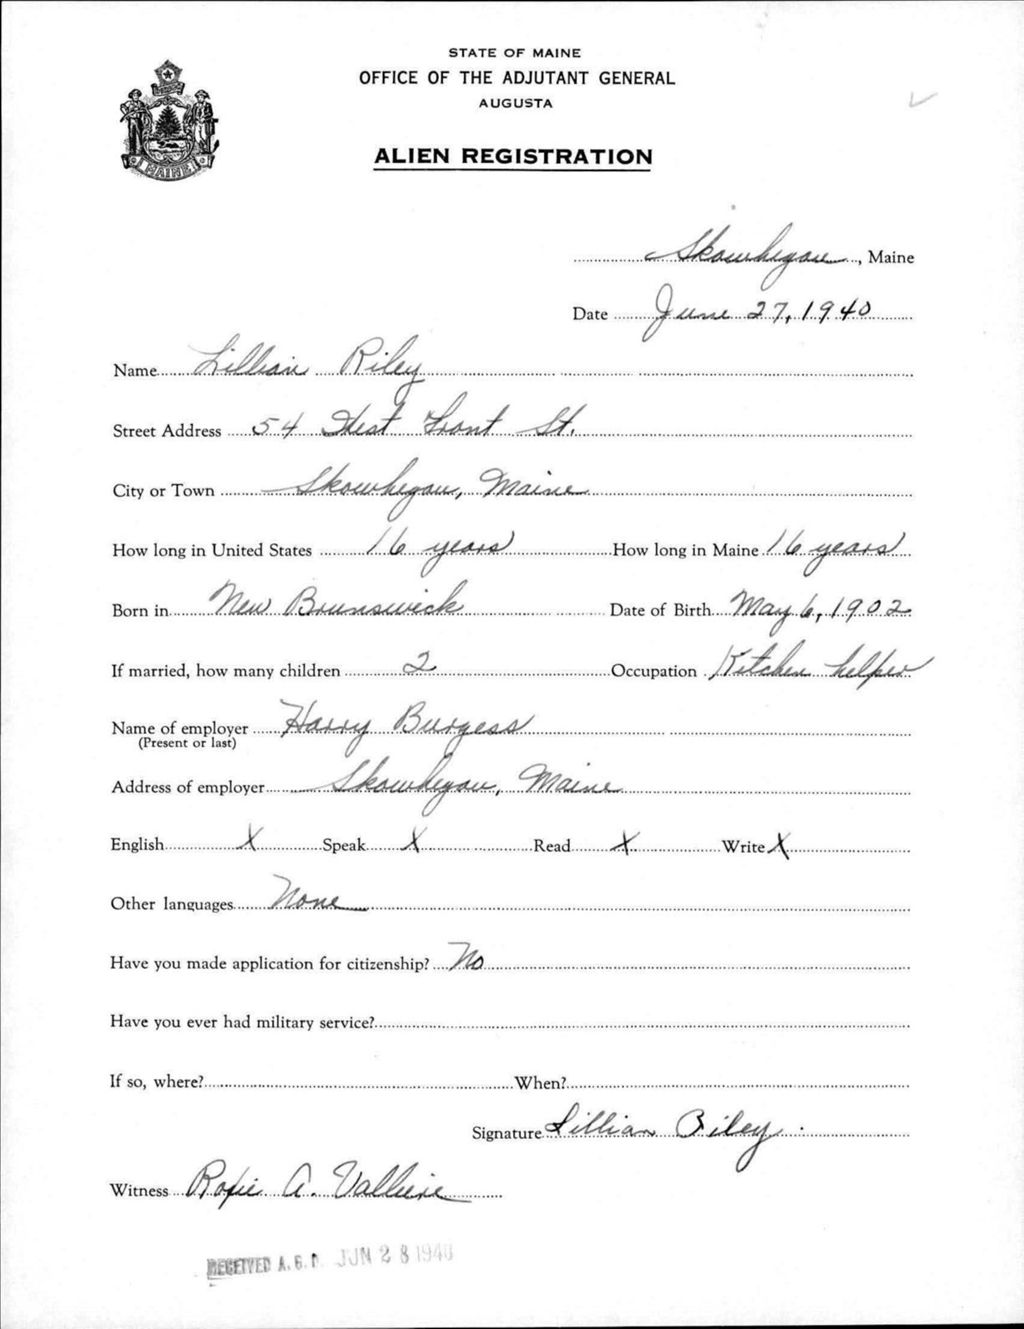 STATE OF MAINE
OFFICE OF THE ADJUTANT GENERAL
AUGUSTA
ALIEN REGISTRATION
MAINE
Skowhegan, Maine
Date June 27, 1940
Name Lillian Riley
Street Address 54 West Front St.
City or Town Skowhegan, Maine
How long in United States 16 years How long in Maine 16 years
Born in New Brunswick Date of Birth May 6, 1902
If married, how many children 2 Occupation Kitchen helper
Name of employer Harry Burgess
(Present or last)
Address of employer Skowhegan, Maine
English X Speak X Read X Write X
Other languages None
Have you made application for citizenship? No
Have you ever had military service?
If so, where? When?
Signature Lillian Riley
Witness A. Valliere
RECEIVED A. G. O. JUN 28 1940